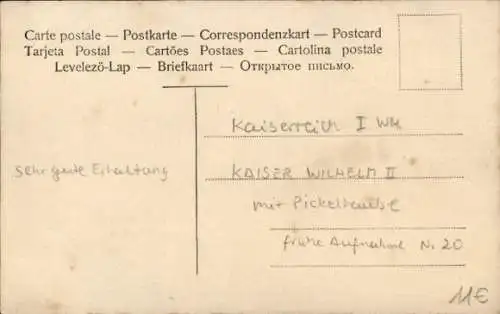 Carte postale — Postkarte — Correspondenzkart — Postcard
Tarjeta Postal — Cartões Postaes — Cartolina postale
Levelező-Lap — Briefkaart — Открытое письмо.
Kaiserreich I WK
Sehr gute Erhaltung
KAISER WILHELM II
mit Pickelhaube
frühe Aufnahme N. 20
11€